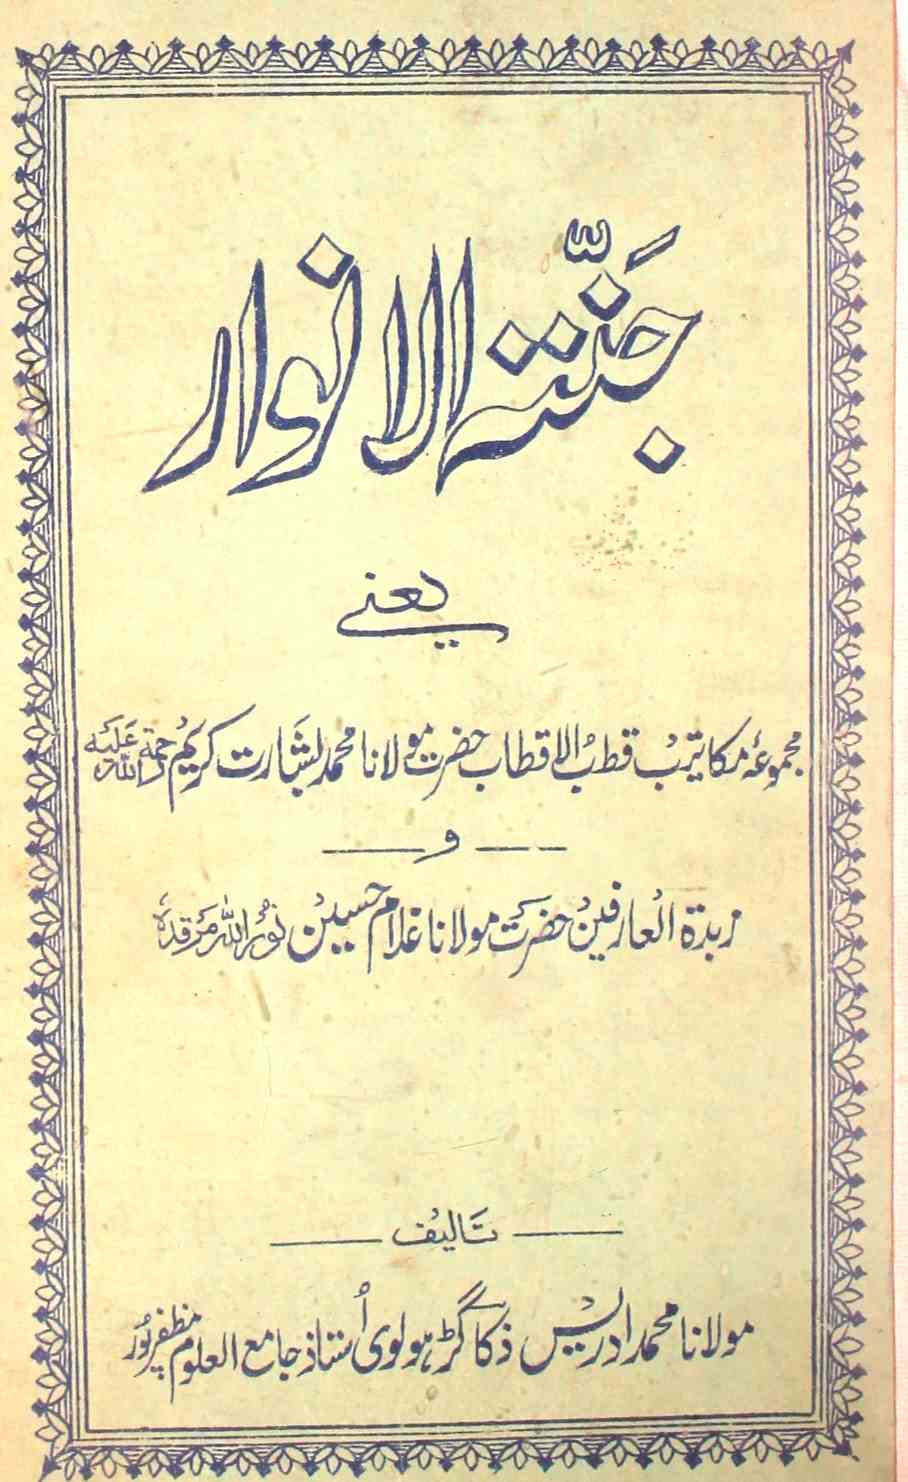 جنّتہ الانوار
یعنے
مجموعۂ مکاتیب قطب الاقطاب حضرت مولانا محمد بشارت کریم رحمۃ اللہ علیہ
و
زبدۃ العارفین حضرت مولانا غلام حسین نور اللہ مرقدہٗ
تالیف
مولانا محمد ادریس ذکا گڑہولوی اُستاذ جامع العلوم مظفرپور